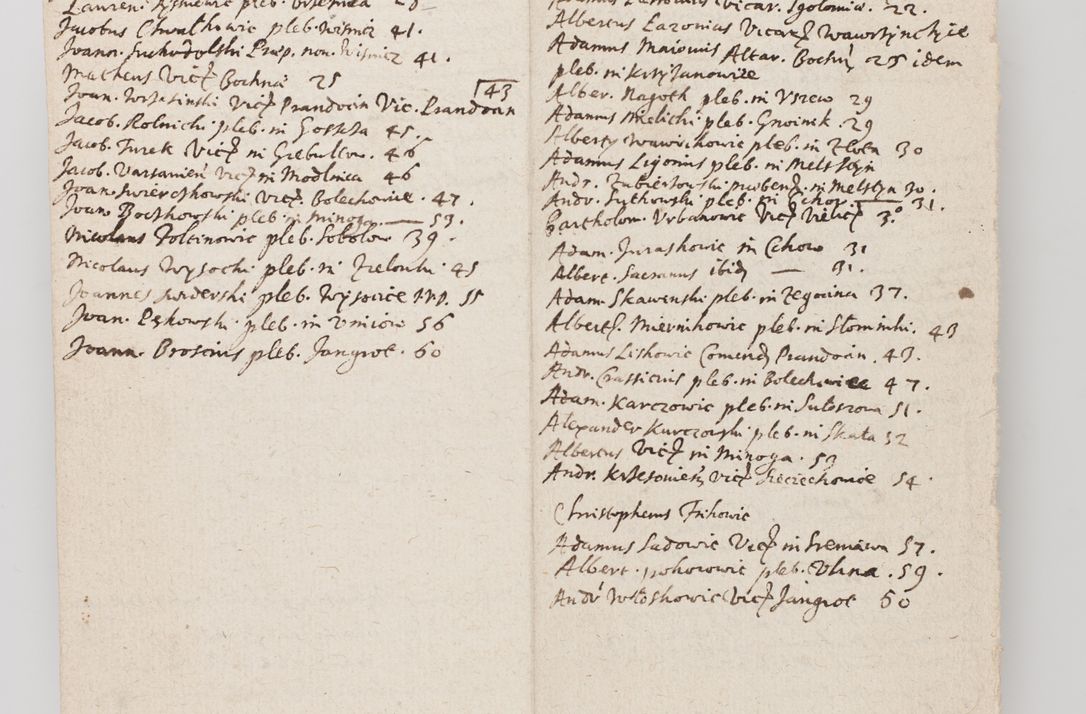 Lauren. pleb. Brzeznica 28
Jacobus Chwalkowic pleb. Wismic 41.
Joann. Suchodolski Prep. nou. Wismicz 41.
Matheus Vic. Bochna 25
43
Joan. Wrzesinski Vic. Prandocin Vic. Prandocin
Jacob. Rolnicki pleb. in Goszcza 45.
Jacob. Turek Vic. in Grebullow. 46
Jacob. Varsauien Vic. in Modlnica 46
Joan. Swierczkowski Vic. Bolechowic. 47.
Joan. Boczkowski pleb. in Minoga. — 53.
Nicolaus Foltinowic pleb. Sokolow 39.
Nicolaus Wysocki pleb. in Zielonki 45
Joannes Swiderski pleb. Wysocice 55
Joan. Lękowski pleb. in Vniow 56
Joann. Broscius pleb. Jangrot. 60
vicar. Igolomia. 22.
Albertus Lazonius Vicar. Wawrzynczyce
Adamus Maiowis Altar. Bochn. 25 idem
pleb. in Krzyzanowice
Alber. Nagoth pleb. in Vszew 29
Adamus Mielicki pleb. Gnoinik. 29
Alberty Wawrichowic pleb. in Zlota 30
Adamus Ligonius pleb. in Melsztyn
Andr. Zubrzotowski prebend. in Melstyn 30.
Andr. Sutkowski pleb. in Czchow. — 31.
Bartholom. Vrbanowic Vic. Vielic. 3.
Adam. Juraskowic in Czchow 31
Albert. Sacranus ibid. — 31.
Adam Skawinski pleb. in Zegocina 37.
Albert. Miernikowic pleb. in Slominki. 43
Adamus Liskowic Comend. Prandocin. 43.
Andr. Crassicius pleb. in Bolechowice 47.
Adam. Karczowic pleb. in Suloszowa 51.
Alexander Kurczowski pleb. in Skala 52
Albertus Vic. in Minoga. 53
Andr. Krzesowien. Vic. Szeciechowice 54.
Christophorus Frikowic
Adamus Sadowic Vic. in Sreniawa 57.
Albert. pleb. Vlina. 59.
Andr. Wloskowic Vic. Jangrot 60